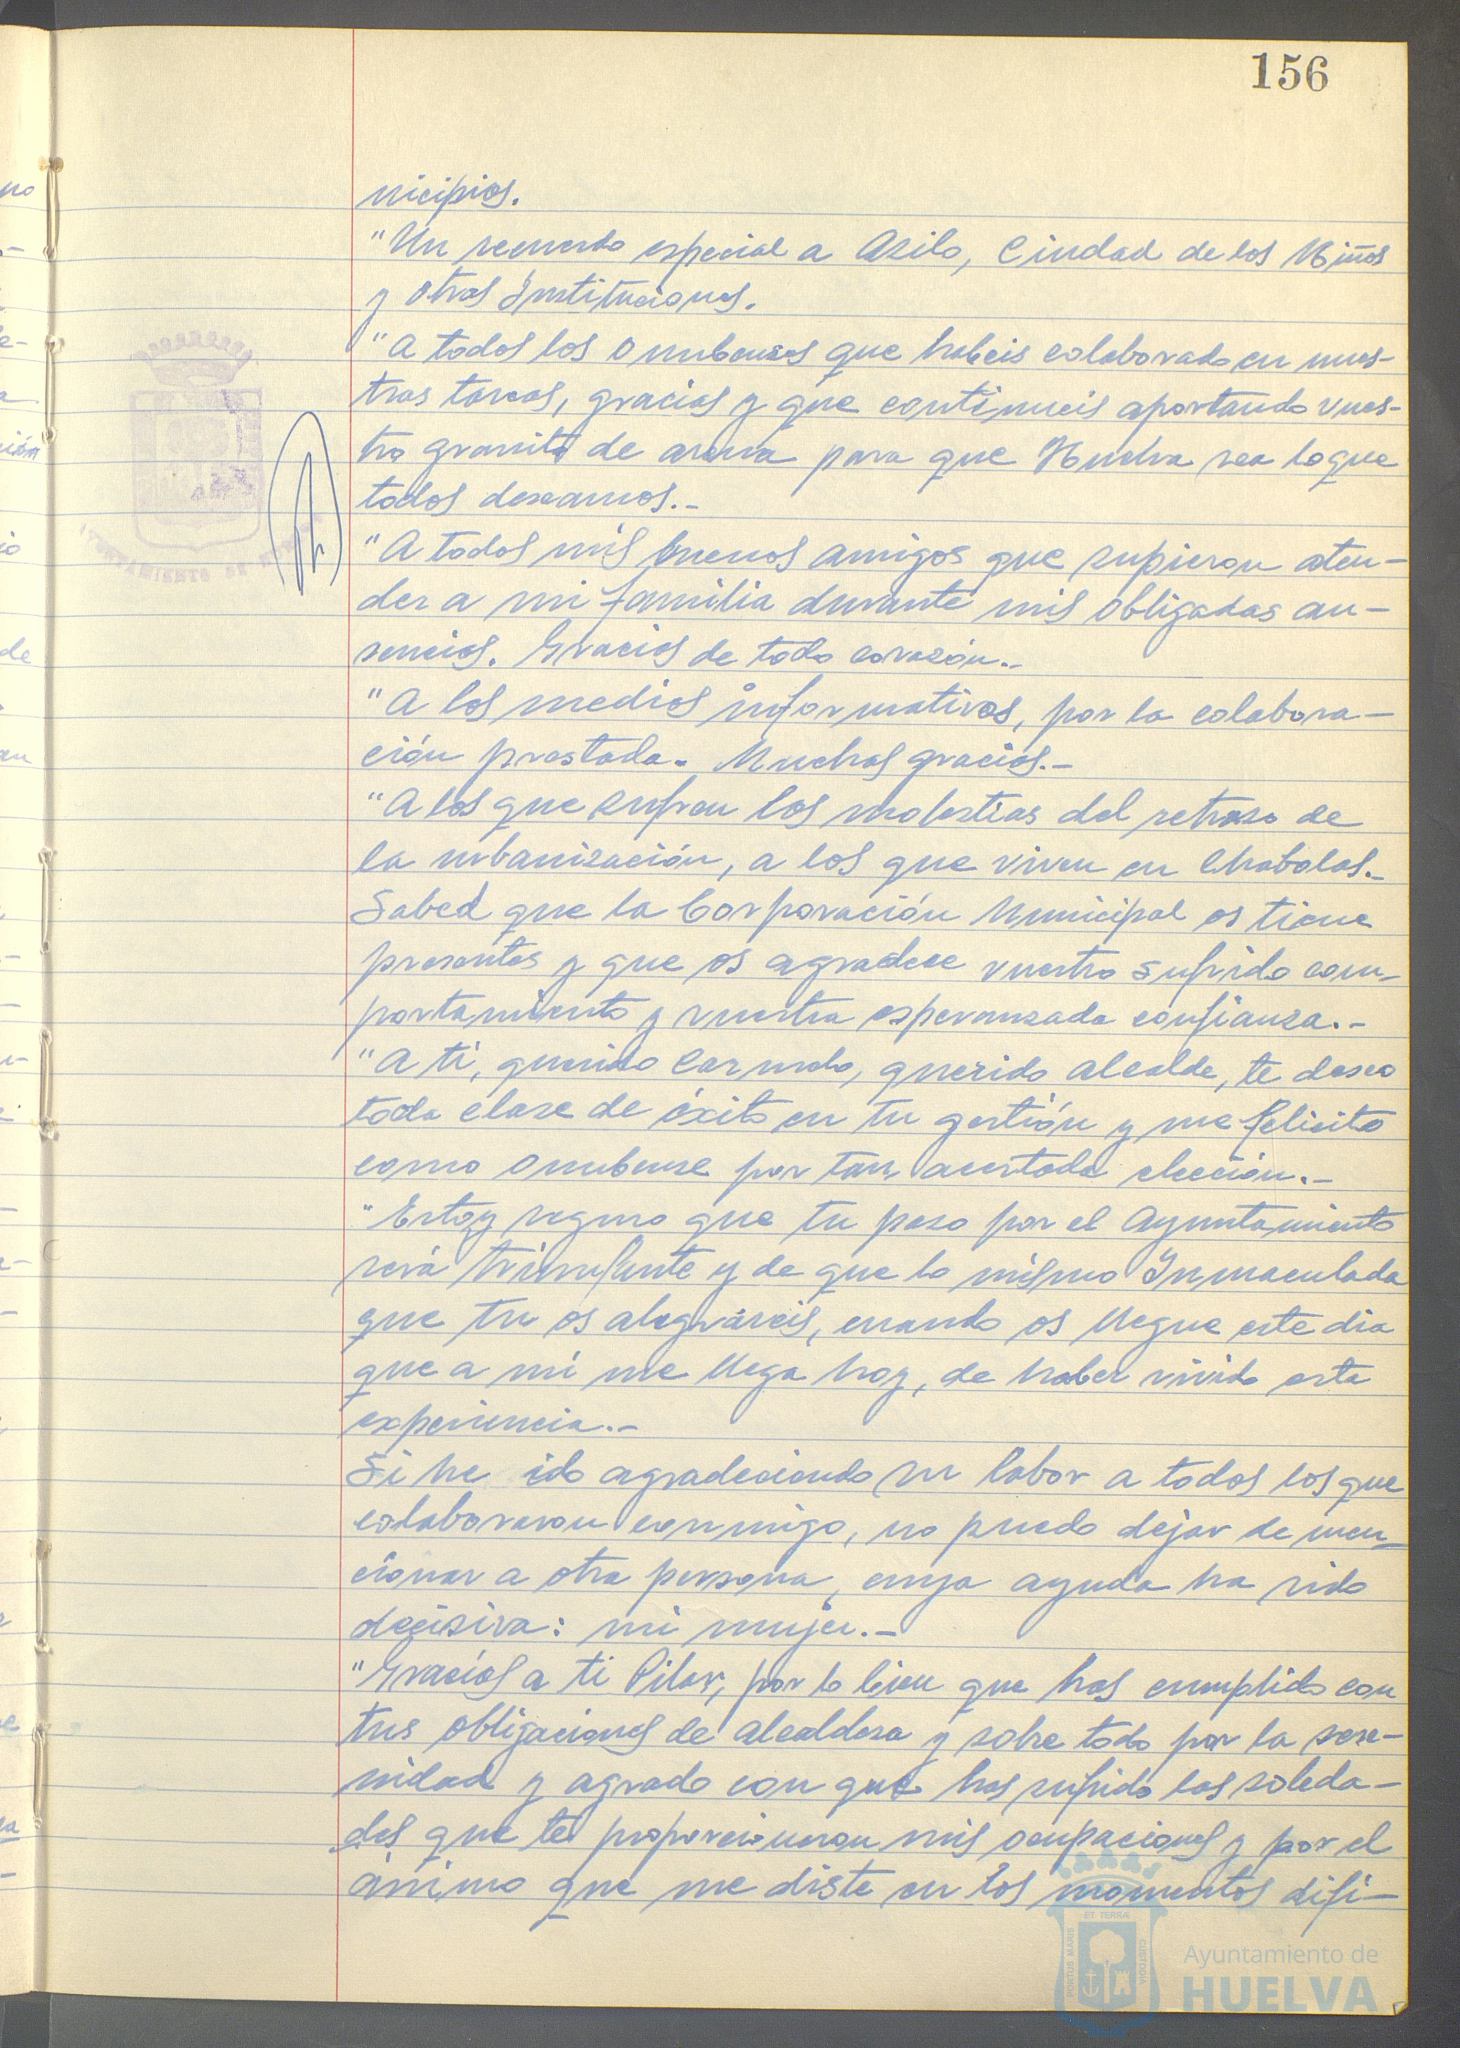 156
nicipios.
"Un recuerdo especial a Asilo, Ciudad de los Niños
y otras Instituciones.
"A todos los onubenses que habeis colaborado en nues-
tras tareas, gracias y que continueis aportando vues-
tro granito de arena para que Huelva sea lo que
todos deseamos.-
"A todos mis buenos amigos que supieron aten-
der a mi familia durante mis obligadas au-
sencias. Gracias de todo corazón.-
"A los medios informativos, por la colabora-
ción prestada. Muchas gracias.-
"A los que sufren las molestias del retraso de
la urbanización, a los que viven en chabolas.-
Sabed que la Corporación Municipal os tiene
presentes y que os agradece vuestro sufrido com-
portamiento y vuestra esperanzada confianza.-
"A ti, querido querido alcalde, te deseo
toda clase de éxito en tu gestión y me felicito
como onubense por tan acertada elección.-
"Estoy seguro que tu paso por el Ayuntamiento
será triunfante y de que lo mismo Inmaculada
que tu os alegráreis, cuando os llegue este dia
que a mí me llega hoy, de haber vivido esta
experiencia.-
Si he ido agradeciendo su labor a todos los que
colaboraron conmigo, no puedo dejar de men-
cionar a otra persona, cuya ayuda ha sido
decisiva: mi mujer.-
"Gracias a ti Pilar, por lo bien que has cumplido con
tus obligaciones de alcaldesa y sobre todo por la sere-
nidad y agrado con que has sufrido las soleda-
des que te proporcionaron mis ocupaciones y por el
ánimo que me diste en los momentos difi-
AYUNTAMIENTO DE HUELVA
PORTUS MARIS ET TERRAE CUSTODIA
Ayuntamiento de
HUELVA